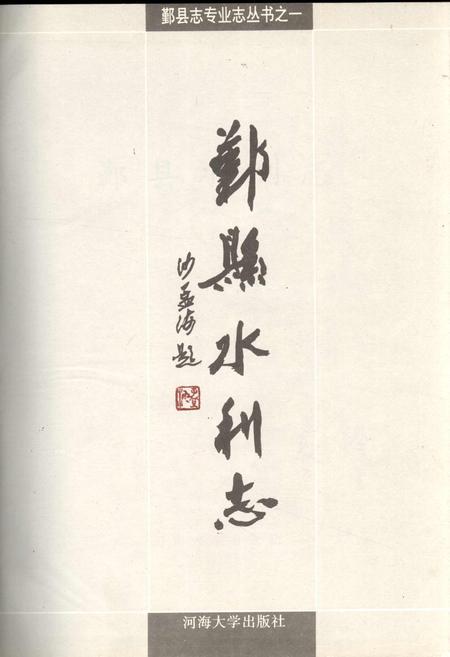 鄞县志专业志丛书之一
鄞縣水利志
沙孟海题
河海大学出版社